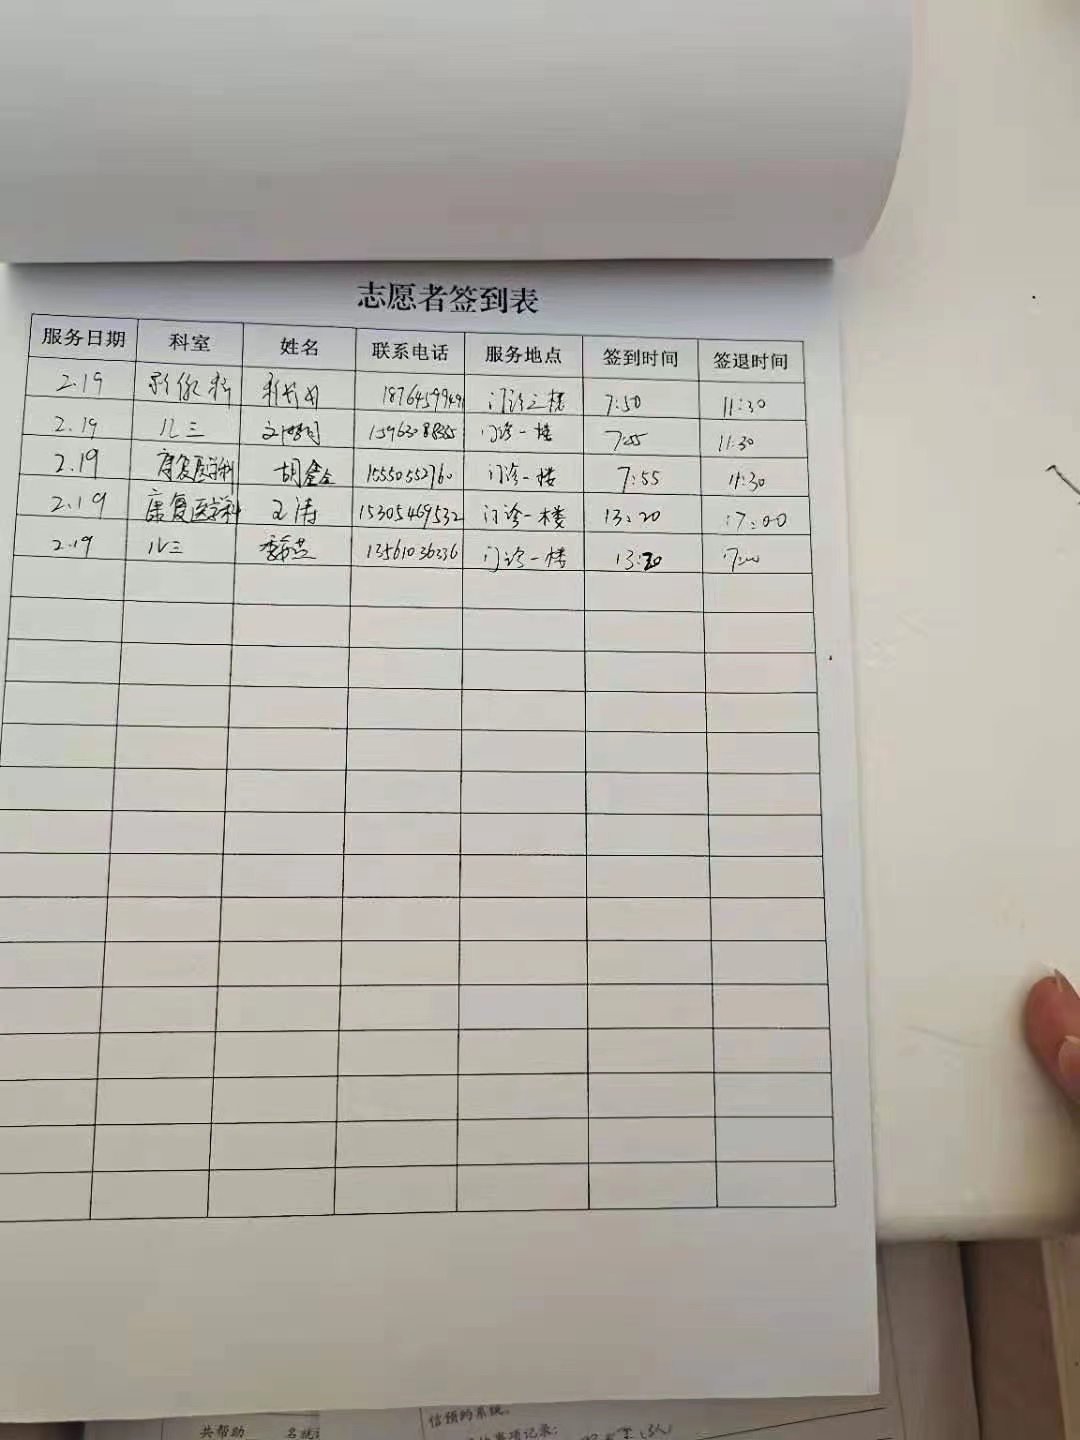 志愿者签到表
服务日期 科室 姓名 联系电话 服务地点 签到时间 签退时间
2.19 影像科 1876459949 门诊三楼 7:50 11:30
2.19 儿三 门诊一楼 7:55 11:30
2.19 康复医学科 胡金金 15550552760 门诊一楼 7:55 11:30
2.19 康复医学科 王涛 15305469532 门诊一楼 13:20 17:00
2.19 儿三 13561036236 门诊一楼 13:20
信预约系统。
共帮助 名
事项记录: